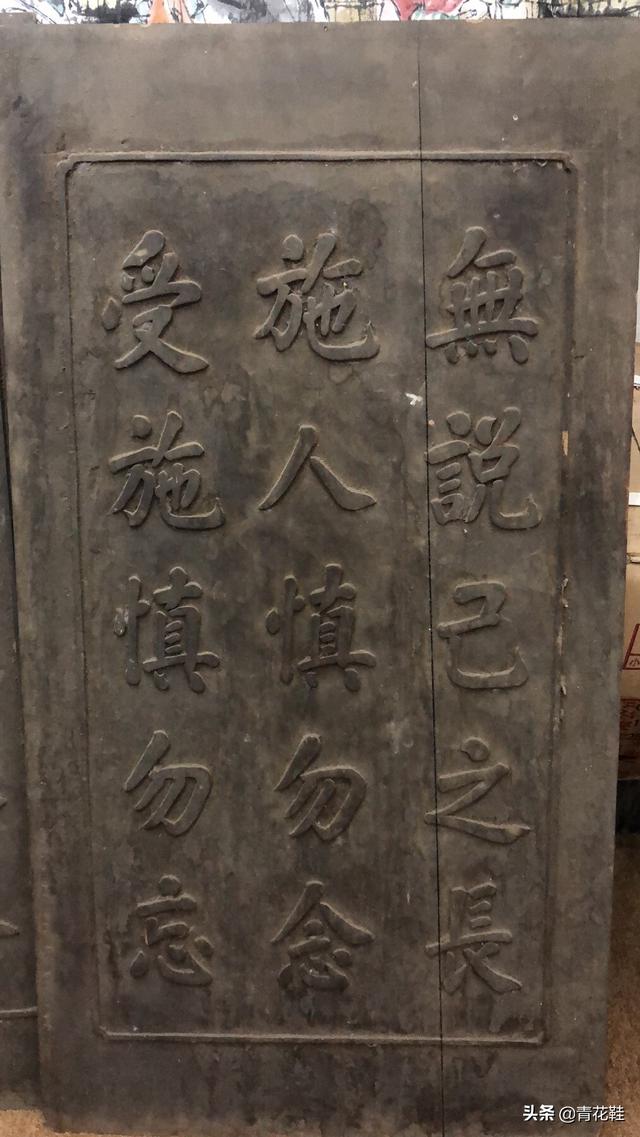 無說己之長
施人慎勿念
受施慎勿忘
头条 @青花鞋